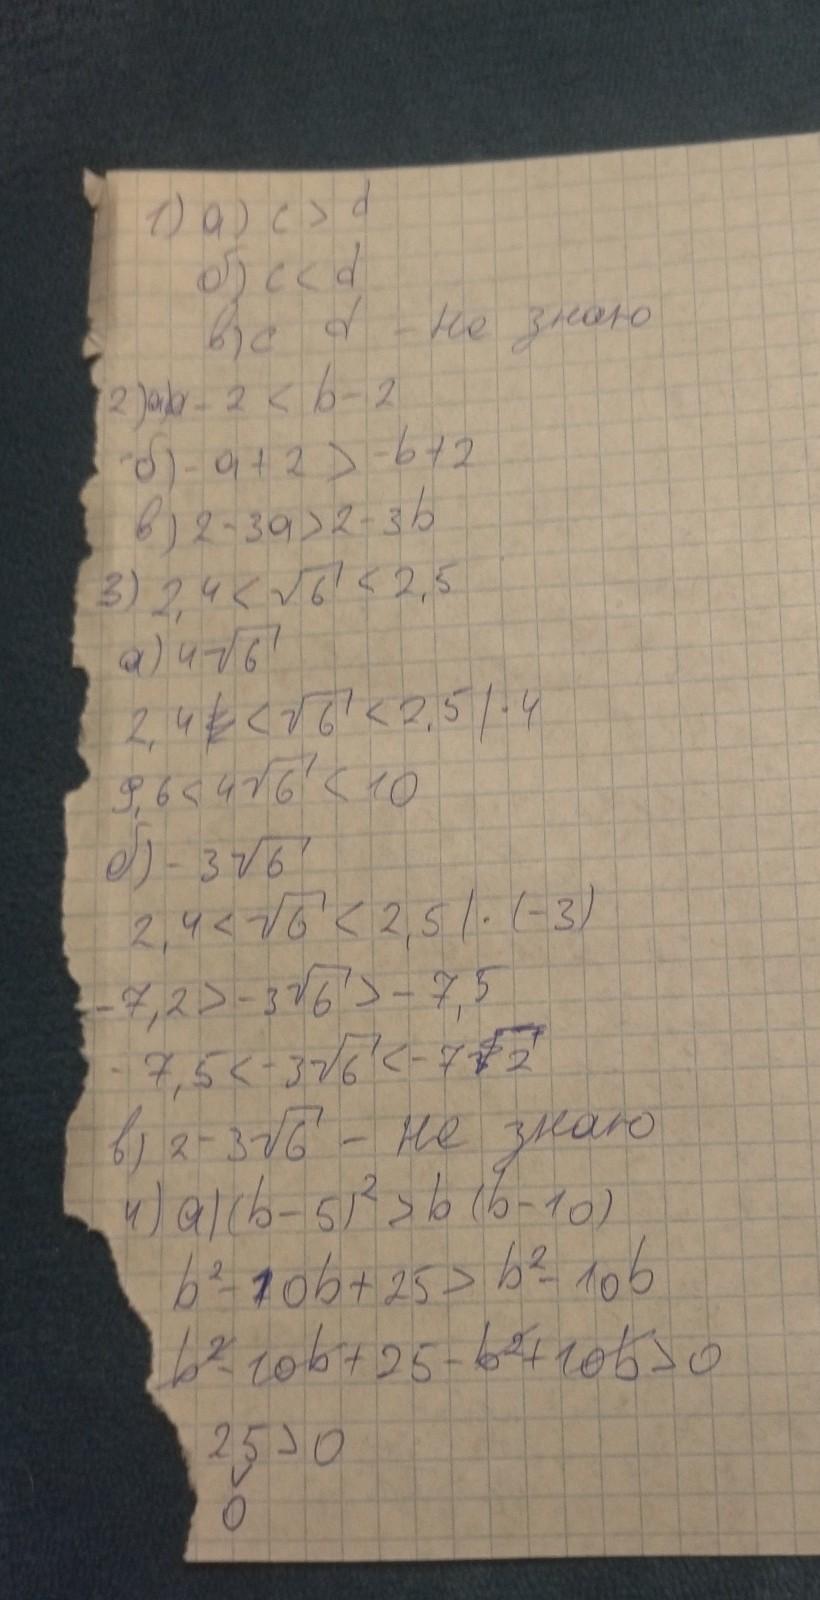 1) а) c > d
б) c < d
в) c d - не знаю
2) а) a - 2 < b - 2
б) - a + 2 > -b + 2
в) 2 - 3a > 2 - 3b
3) 2,4 < √6 < 2,5
а) 4√6
2,4 < √6 < 2,5 | · 4
9,6 < 4√6 < 10
б) - 3√6
2,4 < √6 < 2,5 | · (-3)
-7,2 > -3√6 > -7,5
-7,5 < -3√6 < -7,2
в) 2 - 3√6 - не знаю
4) а) (b - 5)² > b (b - 10)
b² - 10b + 25 > b² - 10b
b² - 10b + 25 - b² + 10b > 0
25 > 0
0